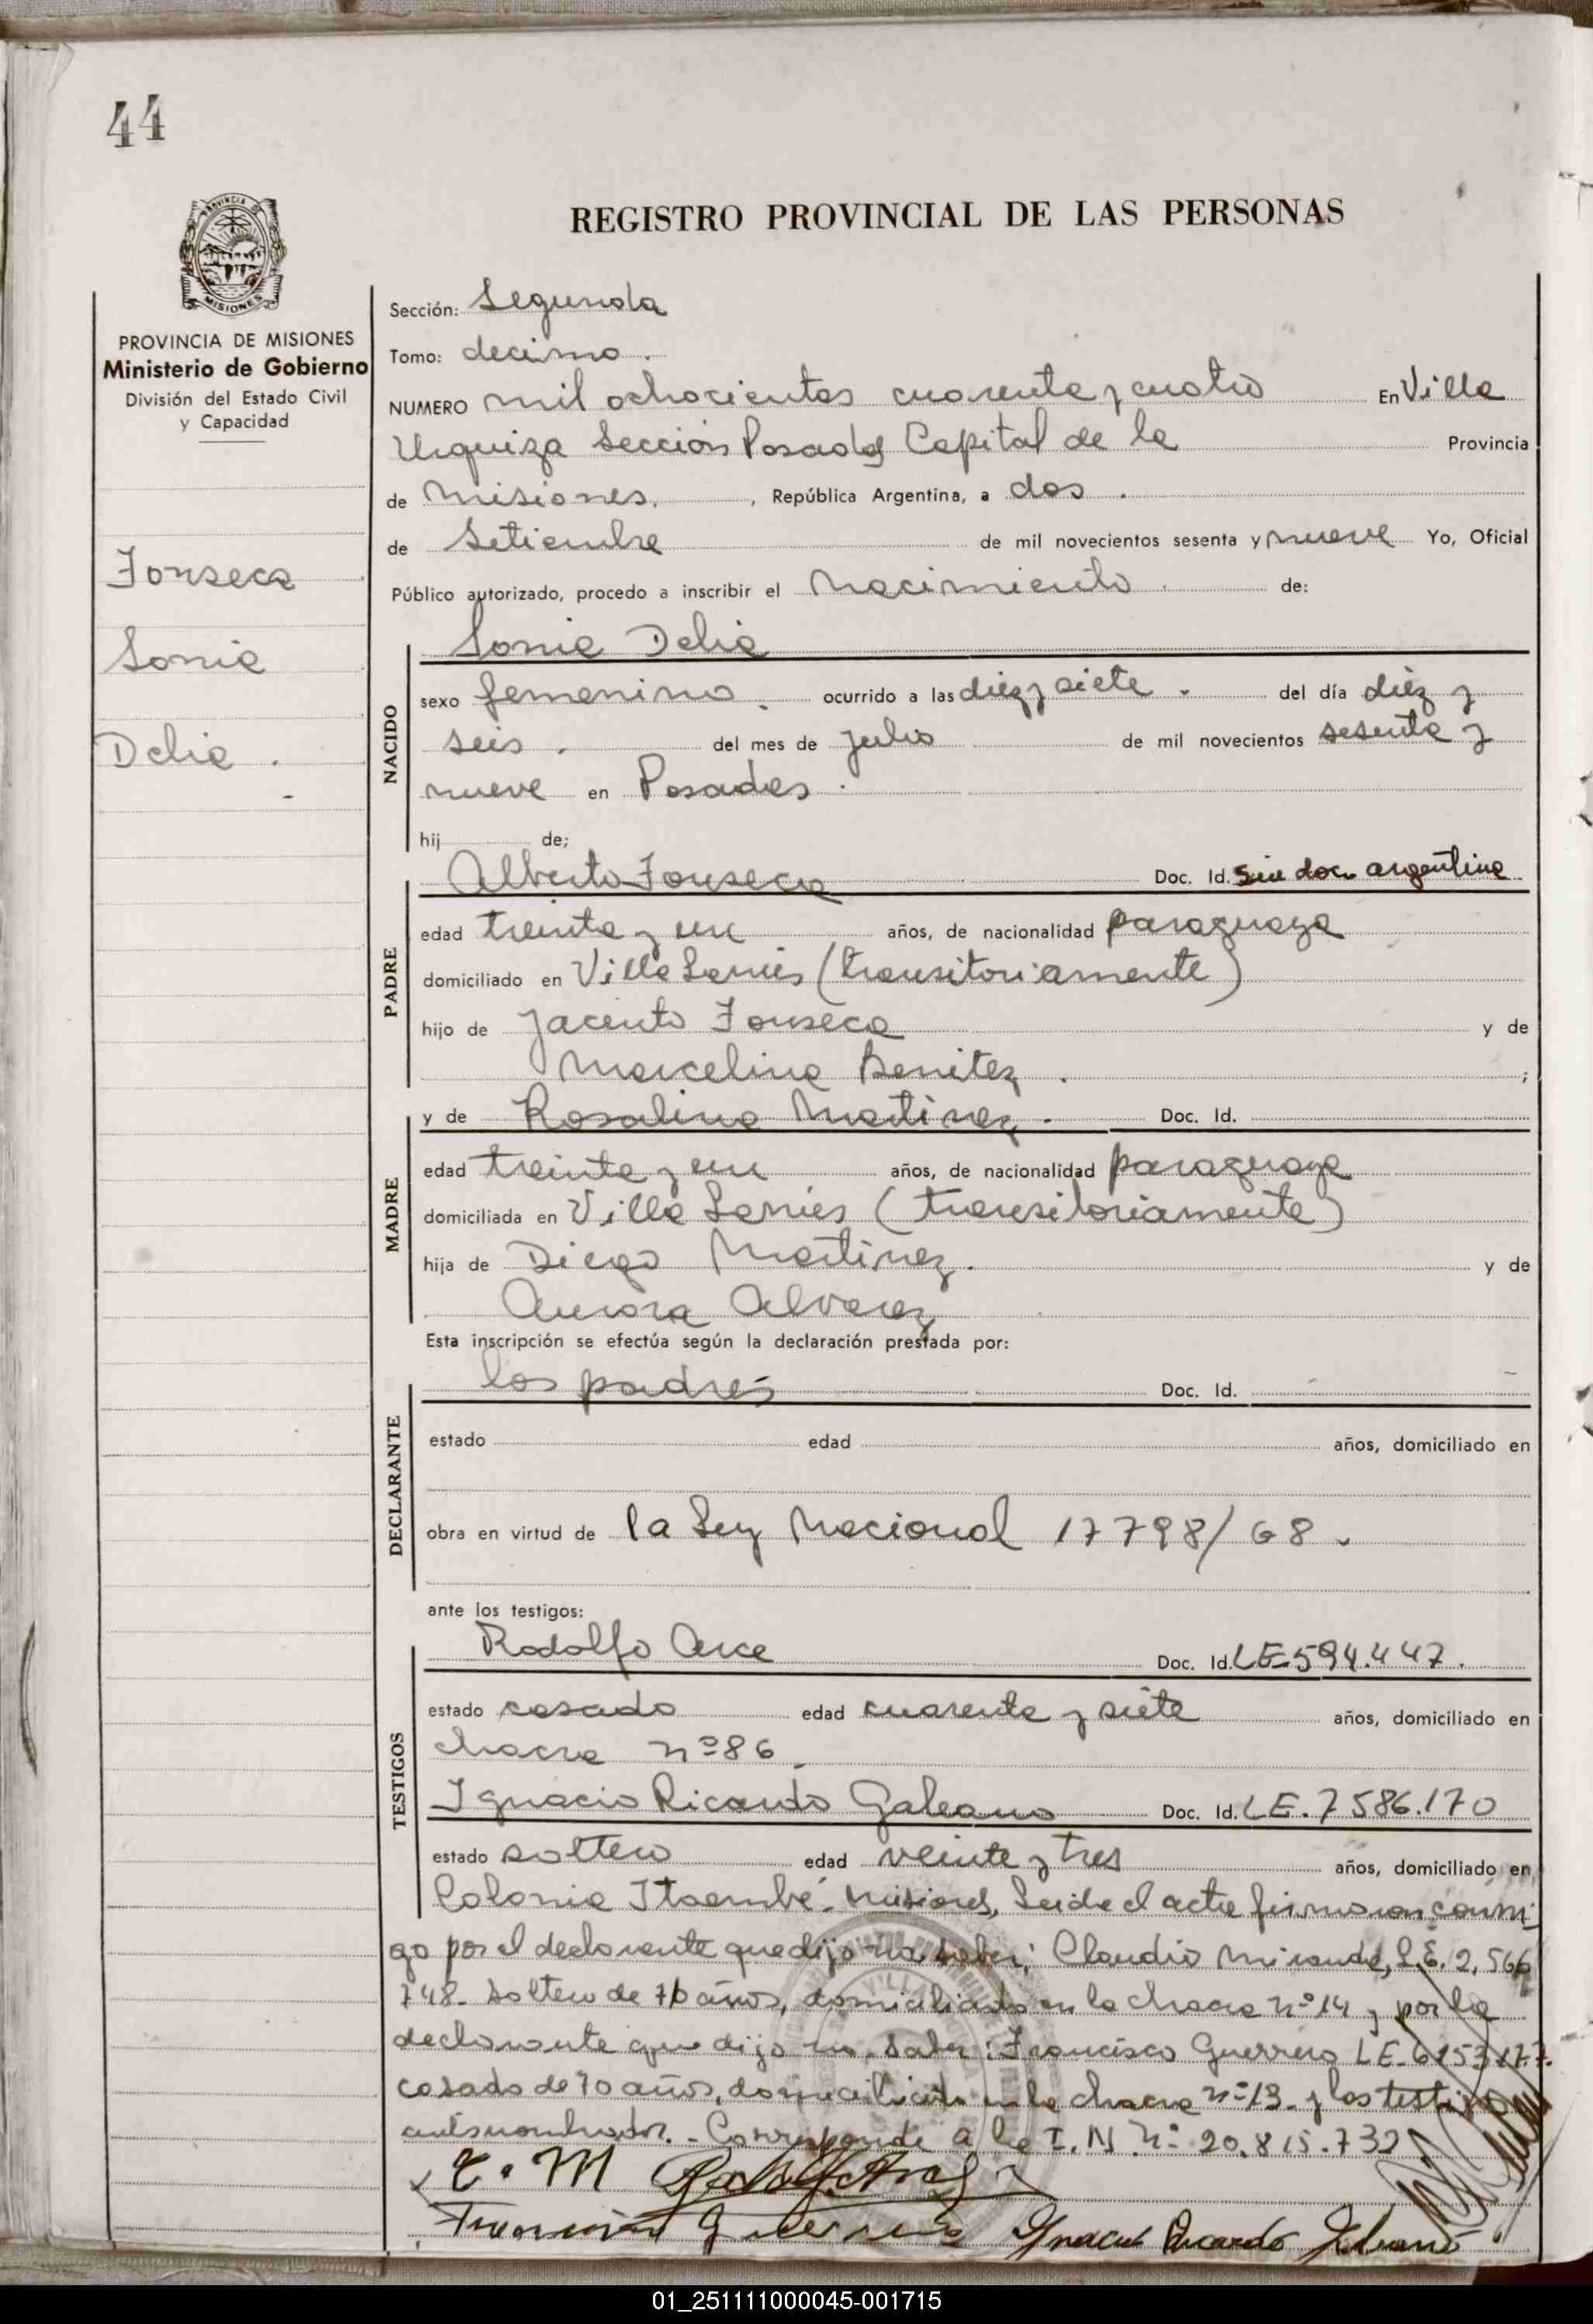 44
PROVINCIA DE MISIONES
Ministerio de Gobierno
División del Estado Civil
y Capacidad
Fonseca
Sonia
Delia.
REGISTRO PROVINCIAL DE LAS PERSONAS
Sección: Segunda
Tomo: decimo.
NUMERO mil ochocientos cuarenta y cuatro En Villa
Urquiza Sección Posadas Capital de la Provincia
de Misiones. , República Argentina, a dos.
de Setiembre de mil novecientos sesenta y nueve Yo, Oficial
Público autorizado, procedo a inscribir el Nacimiento. de:
Sonia Delia
NACIDO
sexo femenino. ocurrido a las diez y siete. del día diez y
seis. del mes de julio de mil novecientos sesenta y
nueve en Posadas.
hij de;
Alberto Fonseca Doc. Id. sin doc. argentina
PADRE
edad treinta y un años, de nacionalidad paraguaya
domiciliado en Villa Lanús (transitoriamente)
hijo de Jacinto Fonseca y de
Marcelina Benitez. ;
y de Rosalina Martinez. Doc. Id.
MADRE
edad treinta y un años, de nacionalidad paraguaya
domiciliada en Villa Lanús (transitoriamente)
hija de Diego Martinez. y de
Aurora Alvarez
Esta inscripción se efectúa según la declaración prestada por:
los padres Doc. Id.
DECLARANTE
estado edad años, domiciliado en
obra en virtud de la Ley Nacional 17798/68.
ante los testigos:
Rodolfo Arce Doc. Id. LE 594.447.
TESTIGOS
estado casado edad cuarenta y siete años, domiciliado en
chacra nº 86
Ignacio Ricardo Galeano Doc. Id. LE. 7586.170
estado soltero edad veinte y tres años, domiciliado en
Colonia Itaembé. Misiones, Leida el acta firmaron conmi
go por el declarante que dijo no saber; Claudio Miranda, L.E. 2.566
748. soltero de años, domiciliado en la chacra nº 14 y por la
declarante que dijo no saber: Francisco Guerrero LE
casado de 70 años, domiciliado en la chacra nº 13. y los testigos
antes nombrados. - Corresponde a la I. N nº 20.815.732
C. M
Francisco Guerrero Ignacio Ricardo Galeano
01_251111000045-001715